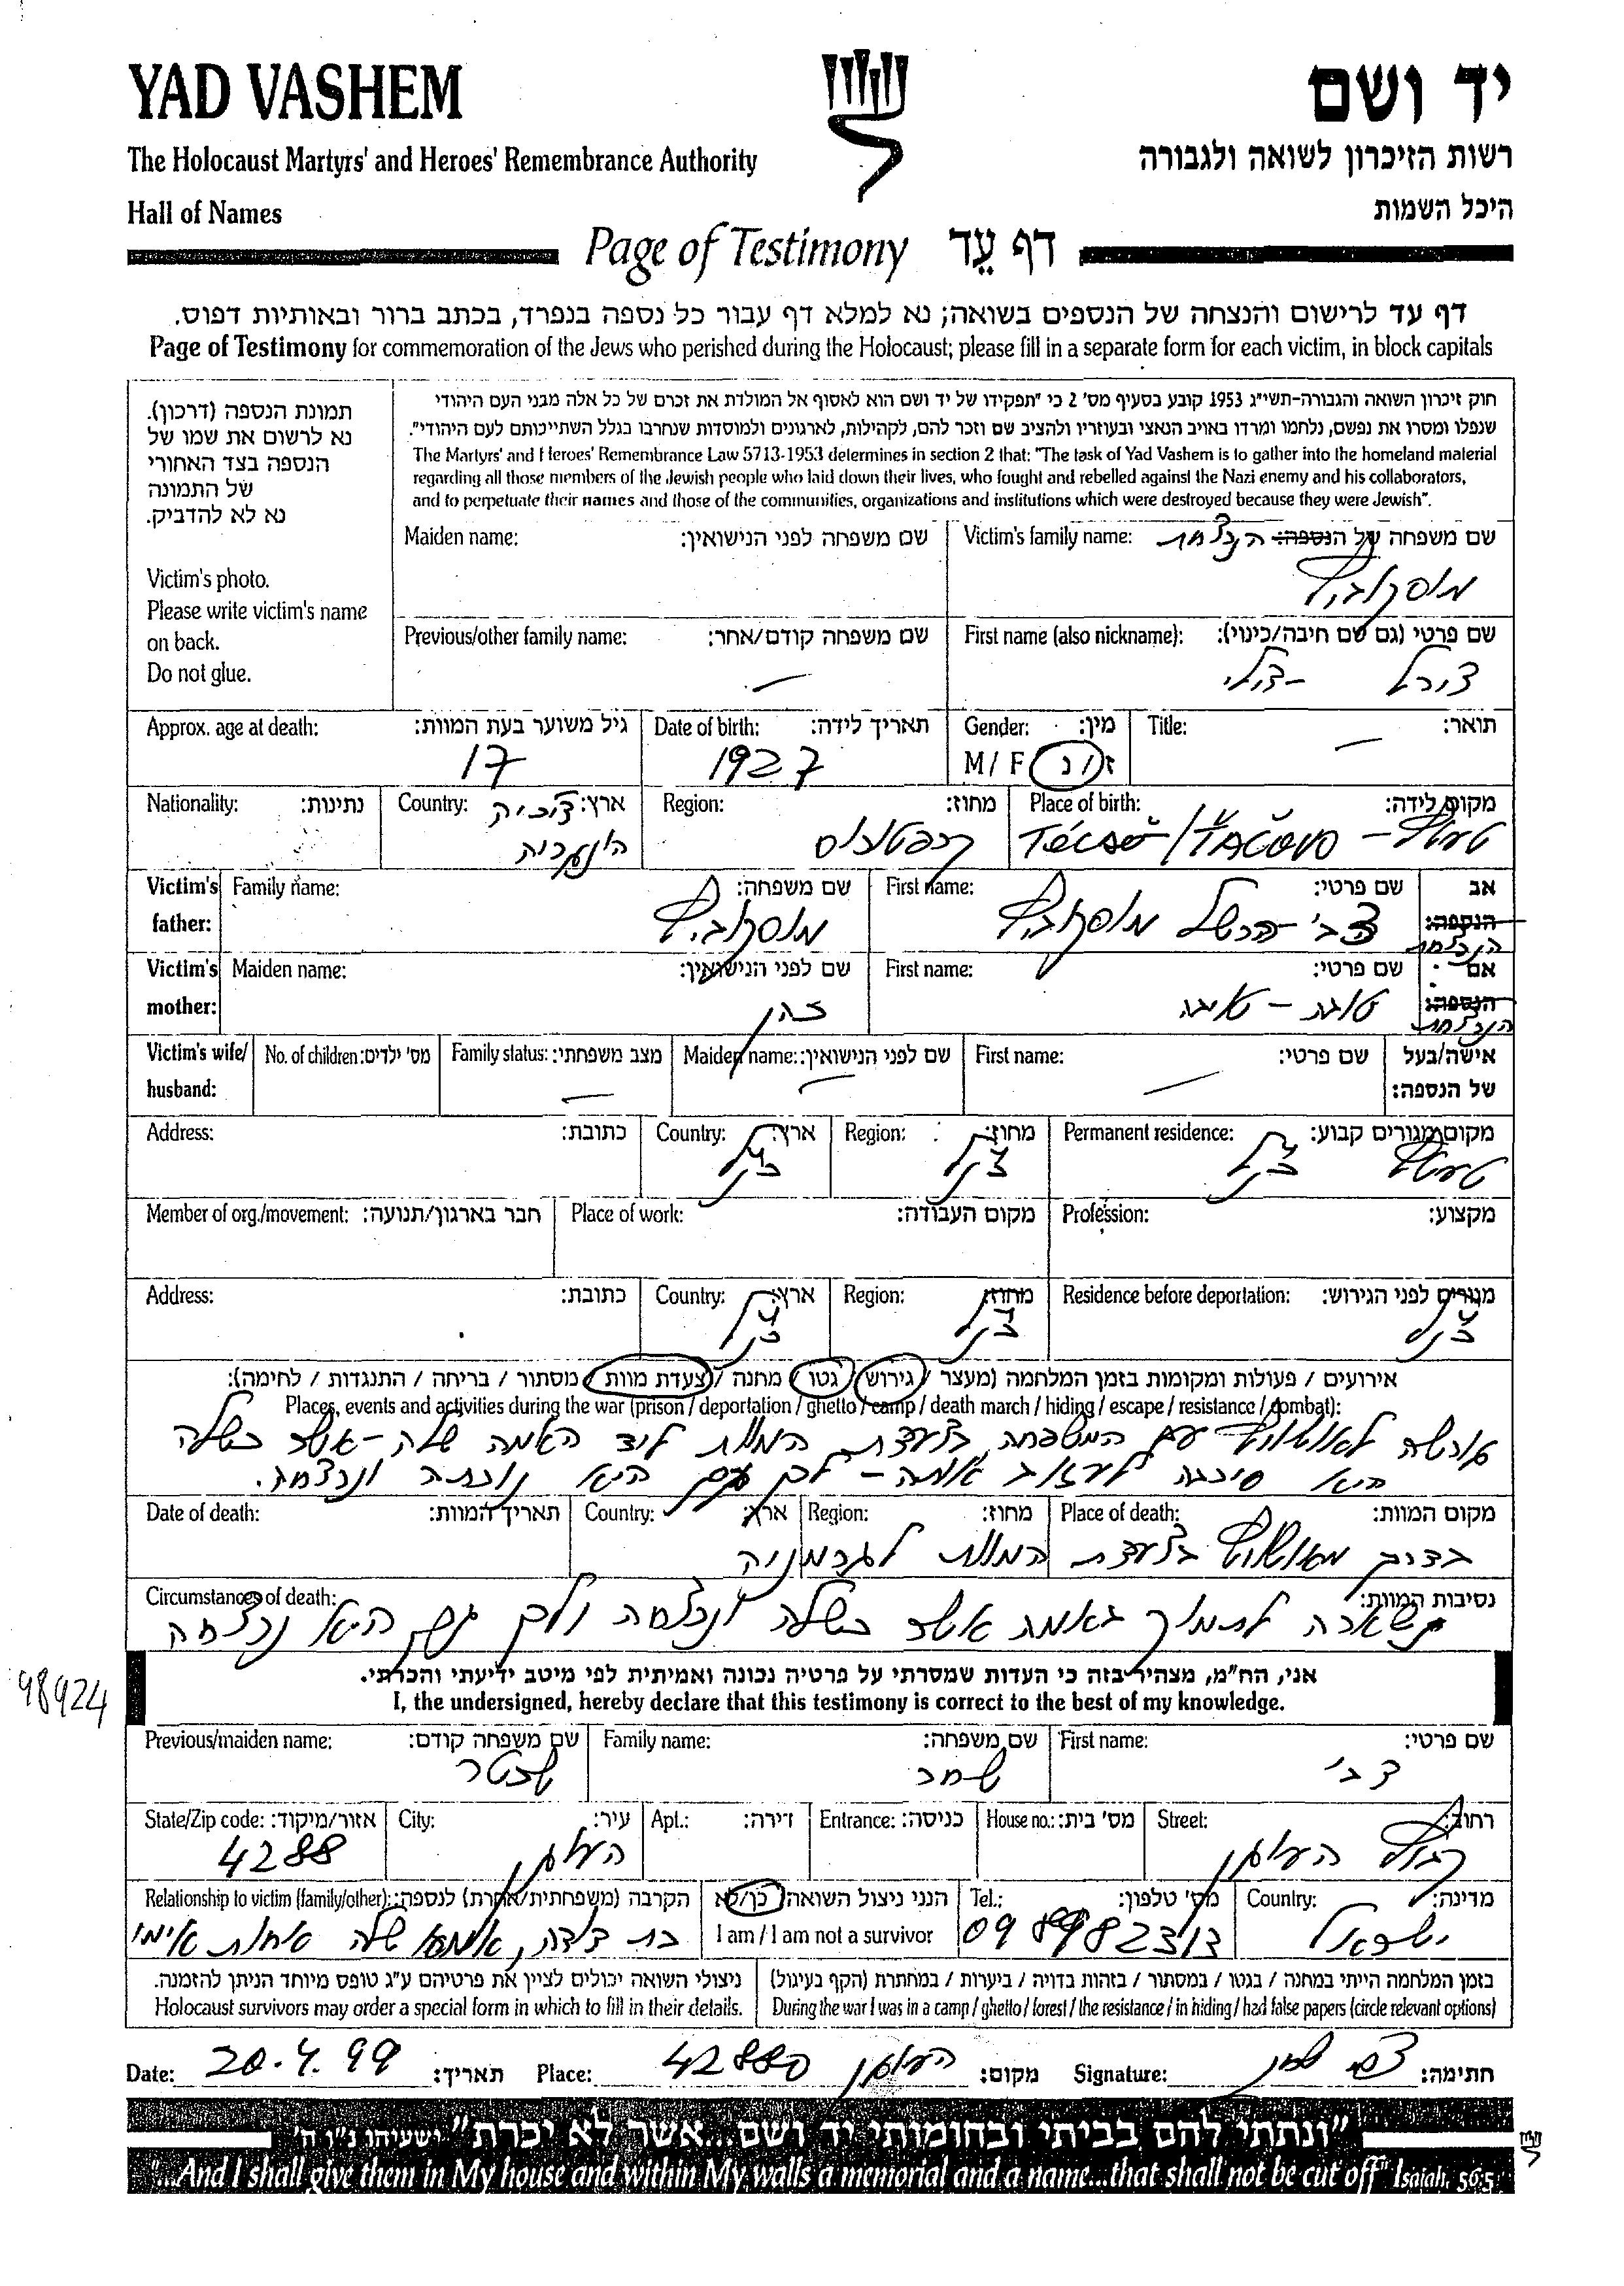 YAD VASHEM
יד ושם
The Holocaust Martyrs' and Heroes' Remembrance Authority
רשות הזיכרון לשואה ולגבורה
Hall of Names
היכל השמות
Page of Testimony דף עֵד
דף עד לרישום והנצחה של הנספים בשואה; נא למלא דף עבור כל נספה בנפרד, בכתב ברור ובאותיות דפוס.
Page of Testimony for commemoration of the Jews who perished during the Holocaust; please fill in a separate form for each victim, in block capitals
תמונת הנספה (דרכון).
נא לרשום את שמו של
הנספה בצד האחורי
של התמונה
נא לא להדביק.
Victim's photo.
Please write victim's name
on back.
Do not glue.
חוק זיכרון השואה והגבורה-תשי"ג 1953 קובע בסעיף מס' 2 כי "תפקידו של יד ושם הוא לאסוף אל המולדת את זכרם של כל אלה מבני העם היהודי
שנפלו ומסרו את נפשם, נלחמו ומרדו באויב הנאצי ובעוזריו ולהציב שם וזכר להם, לקהילות, לארגונים ולמוסדות שנחרבו בגלל השתייכותם לעם היהודי".
The Martyrs' and Heroes' Remembrance Law 5713-1953 determines in section 2 that: "The task of Yad Vashem is to gather into the homeland material
regarding all those members of the Jewish people who laid down their lives, who fought and rebelled against the Nazi enemy and his collaborators,
and to perpetuate their names and those of the communities, organizations and institutions which were destroyed because they were Jewish".
שם משפחה של הנספה: הנרצחת Victim's family name:
מוסקוביץ
שם משפחה לפני הנישואין: Maiden name:
שם פרטי (גם שם חיבה/כינוי): First name (also nickname):
צורל - צולי
שם משפחה קודם/אחר: Previous/other family name:
תואר: Title:
מין: Gender:
M / F ז / נ
תאריך לידה: Date of birth:
1927
גיל משוער בעת המוות: Approx. age at death:
17
מקום לידה: Place of birth:
טעטש - Técső / ŤAČOVO
מחוז: Region:
קרפטורוס
ארץ: Country: צ'כיה
הונגריה
נתינות: Nationality:
אב הנספה: הנרצחת Victim's father:
שם פרטי: First name:
צבי - הרשל מוסקוביץ
שם משפחה: Family name:
מוסקוביץ
אם הנספה: הנרצחת Victim's mother:
שם פרטי: First name:
טובה - טויבה
שם לפני הנישואין: Maiden name:
זהן
אישה/בעל של הנספה: Victim's wife/ husband:
שם פרטי: First name:
שם לפני הנישואין: Maiden name:
מצב משפחתי: Family status:
מס' ילדים: No. of children:
מקום מגורים קבוע: Permanent residence:
טעטש כנ"ל
מחוז: Region:
כנ"ל
ארץ: Country:
כנ"ל
כתובת: Address:
מקצוע: Profession:
מקום העבודה: Place of work:
חבר בארגון/תנועה: Member of org./movement:
מגורים לפני הגירוש: Residence before deportation:
כנ"ל
מחוז: Region:
כנ"ל
ארץ: Country:
כנ"ל
כתובת: Address:
אירועים / פעולות ומקומות בזמן המלחמה (מעצר / גירוש / גטו / מחנה / צעדת מוות / מסתור / בריחה / התנגדות / לחימה):
Places, events and activities during the war (prison / deportation / ghetto / camp / death march / hiding / escape / resistance / combat):
גורשה לאושוויץ עם המשפחה, בצעדת המוות ליד האמה שלה - אשר כשלה
היא סירבה לעזוב אותה - לכן גם היא נורתה ונרצחה.
מקום המוות: Place of death:
מחוז: Region:
ארץ: Country:
תאריך המוות: Date of death:
בדרך מאושוויץ בצעדת המוות לגרמניה
נסיבות המוות: Circumstances of death:
נשארה לתמוך באמה אשר כשלה ונרצחה ולכן גם היא נרצחה
98924
אני, הח"מ, מצהיר בזה כי העדות שמסרתי על פרטיה נכונה ואמיתית לפי מיטב ידיעתי והכרתי.
I, the undersigned, hereby declare that this testimony is correct to the best of my knowledge.
שם פרטי: First name:
צבי
שם משפחה: Family name:
שמר
שם משפחה קודם: Previous/maiden name:
רחוב: Street:
קבוץ העוגן
מס' בית: House no.:
כניסה: Entrance:
דירה: Apt.:
עיר: City:
העוגן
אזור/מיקוד: State/Zip code:
4288
מדינה: Country:
ישראל
מס' טלפון: Tel.:
09 8982313
הנני ניצול השואה כן/לא
I am / I am not a survivor
הקרבה (משפחתית/אחרת) לנספה: Relationship to victim (family/other):
בת דודה, אמא שלה אחות אימי
בזמן המלחמה הייתי במחנה / בגטו / במסתור / בזהות בדויה / ביערות / במחתרת (הקף בעיגול)
During the war I was in a camp / ghetto / forest / the resistance / in hiding / had false papers (circle relevant options)
ניצולי השואה יכולים לציין את פרטיהם ע"ג טופס מיוחד הניתן להזמנה.
Holocaust survivors may order a special form in which to fill in their details.
Date: 20.4.99 תאריך: Place: העוגן 42880 מקום: Signature: צבי שמר חתימה:
"ונתתי להם בביתי ובחומותי יד ושם...אשר לא יכרת" ישעיהו נ"ו ה'
"...And I shall give them in My house and within My walls a memorial and a name...that shall not be cut off" Isaiah, 56:5